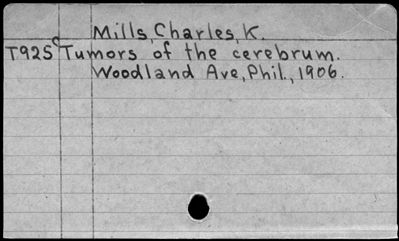 Mills, Charles, K.
T925c Tumors of the cerebrum.
Woodland Ave, Phil., 1906.